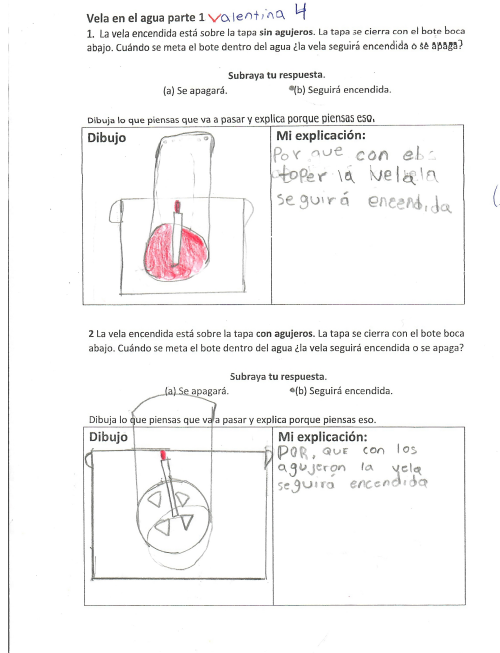 Vela en el agua parte 1 Valentina 4
1. La vela encendida está sobre la tapa sin agujeros. La tapa se cierra con el bote boca
abajo. Cuándo se meta el bote dentro del agua ¿la vela seguirá encendida o se apaga?
Subraya tu respuesta.
(a) Se apagará. (b) Seguirá encendida.
Dibuja lo que piensas que va a pasar y explica porque piensas eso.
Dibujo
Mi explicación:
Por que con el
toper la
seguirá encendida
2 La vela encendida está sobre la tapa con agujeros. La tapa se cierra con el bote boca
abajo. Cuándo se meta el bote dentro del agua ¿la vela seguirá encendida o se apaga?
Subraya tu respuesta.
(a) Se apagará. (b) Seguirá encendida.
Dibuja lo que piensas que va a pasar y explica porque piensas eso.
Dibujo
Mi explicación:
POR, QUE con los
agujeron la vela
seguirá encendida